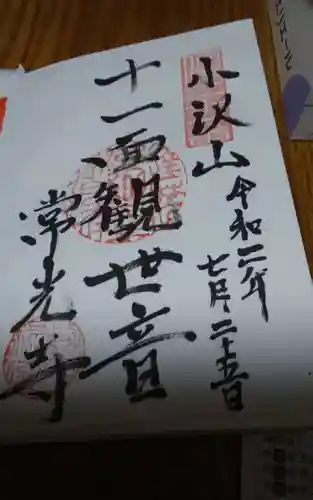 小沢山
令和二年
七月二十五日
十一面観世音
常光寺